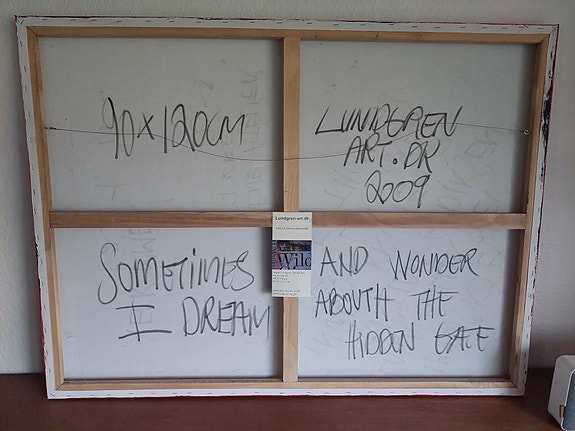 90x120CM
LUNDGREN
ART.DK
2009
Lundgren-art.dk
Wild
SOMETIMES
I DREAM
AND WONDER
ABOUTH THE
HIDDEN GATE